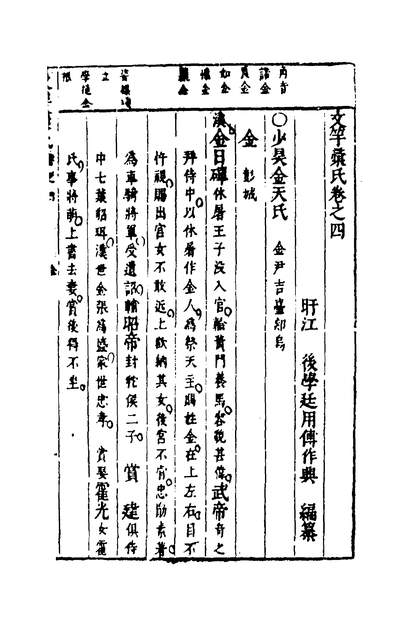 文竿彙氏卷之四
盱江 後學廷用傅作興 編纂
○少昊金天氏 金尹吉臺
金 彭城
漢金日磾休屠王子沒入官輸黃門養馬容貌甚偉武帝奇之
拜侍中以休屠作金人為祭天主賜姓金在上左右目不
忤視賜出宮女不敢近上欲納其女後宮不肯忠勛素著
為車騎將軍受遺詔輔昭帝封秺侯二子 賞 建俱侍
中七葉貂珥漢世金張為盛家世忠孝 賞娶霍光女霍
氏事將萌上書去妻賞後得不坐